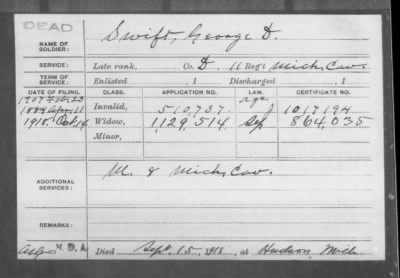 DEAD
NAME OF SOLDIER: Swift, George D.
SERVICE: Late rank, Co. D. 11 Regt Mich, Cav.
TERM OF SERVICE: Enlisted , 1 Discharged , 1
DATE OF FILING. CLASS. APPLICATION NO. LAW. CERTIFICATE NO.
1907 Feb. 23 age,
1884 Apr. 11 Invalid, 510,737. J 1017194
1918, Oct. 14 Widow, 1,129,514. Sep 864,035
Minor,
ADDITIONAL SERVICES: M. 8 Mich, Cav.
REMARKS:
N.D.A. Died Sept. 15, 1918, at Hudson, Mich